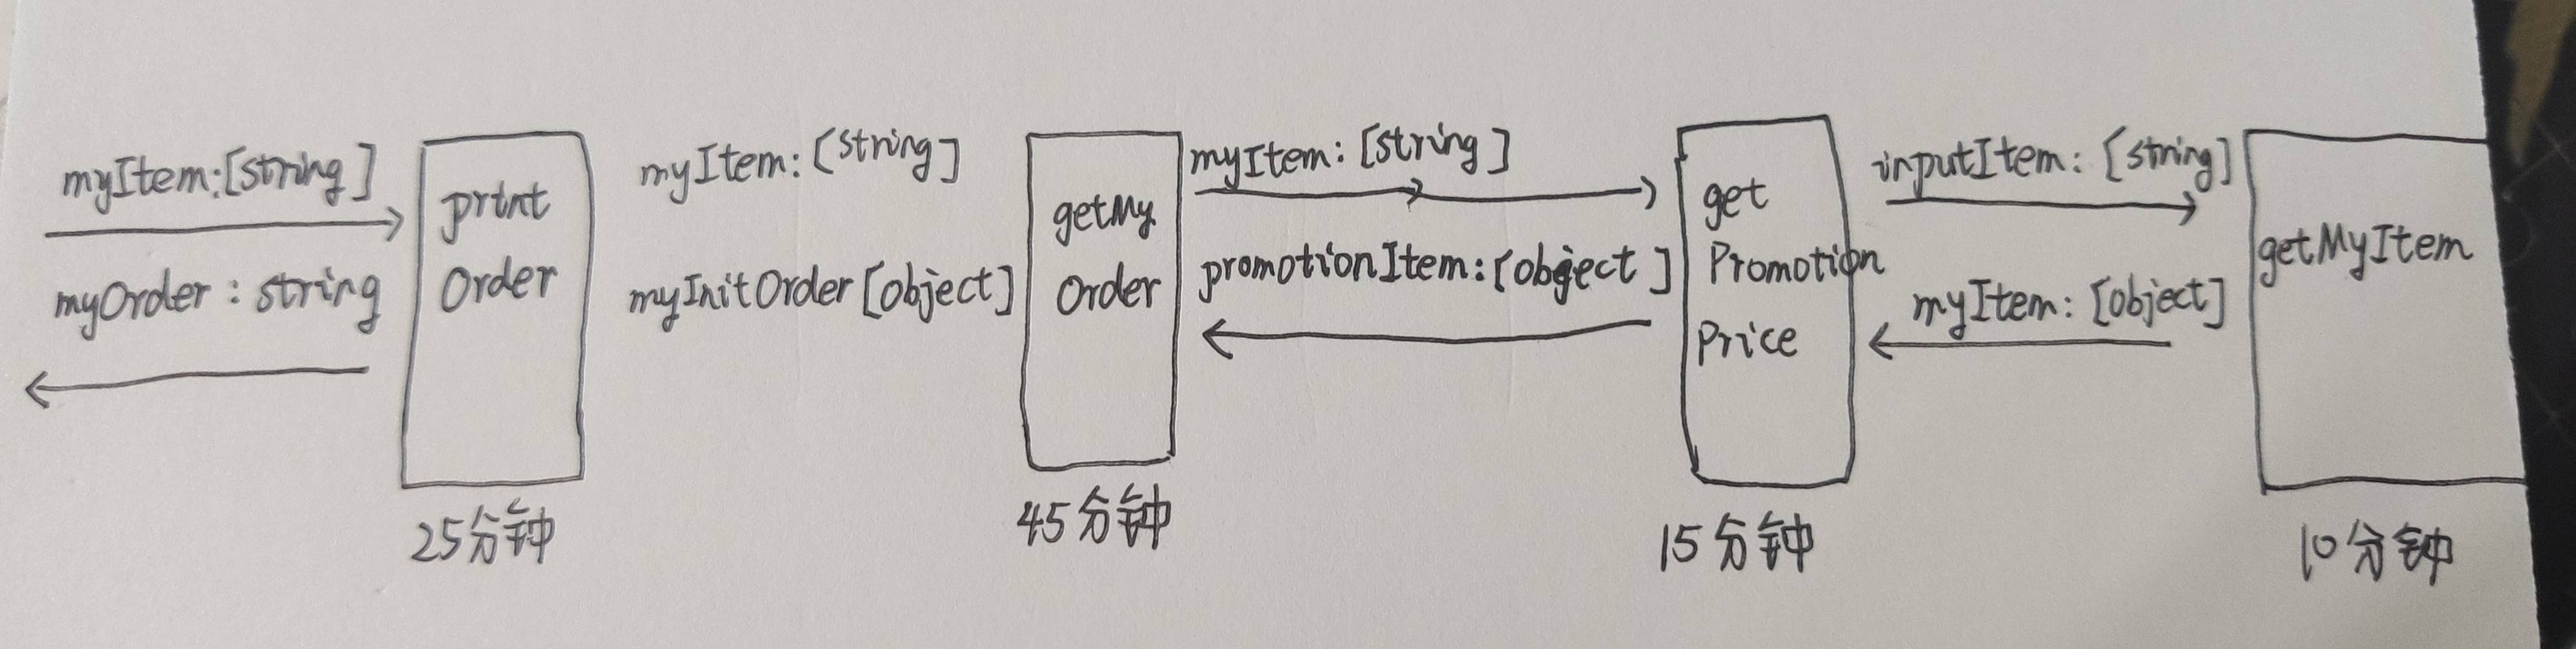 myItem:[string]
myOrder : string
print
Order
25分钟
myItem: [string]
myInitOrder[object]
getMy
Order
45分钟
myItem: [string]
promotionItem:[object]
get
Promotion
Price
15分钟
inputItem: [string]
myItem: [object]
getMyItem
10分钟